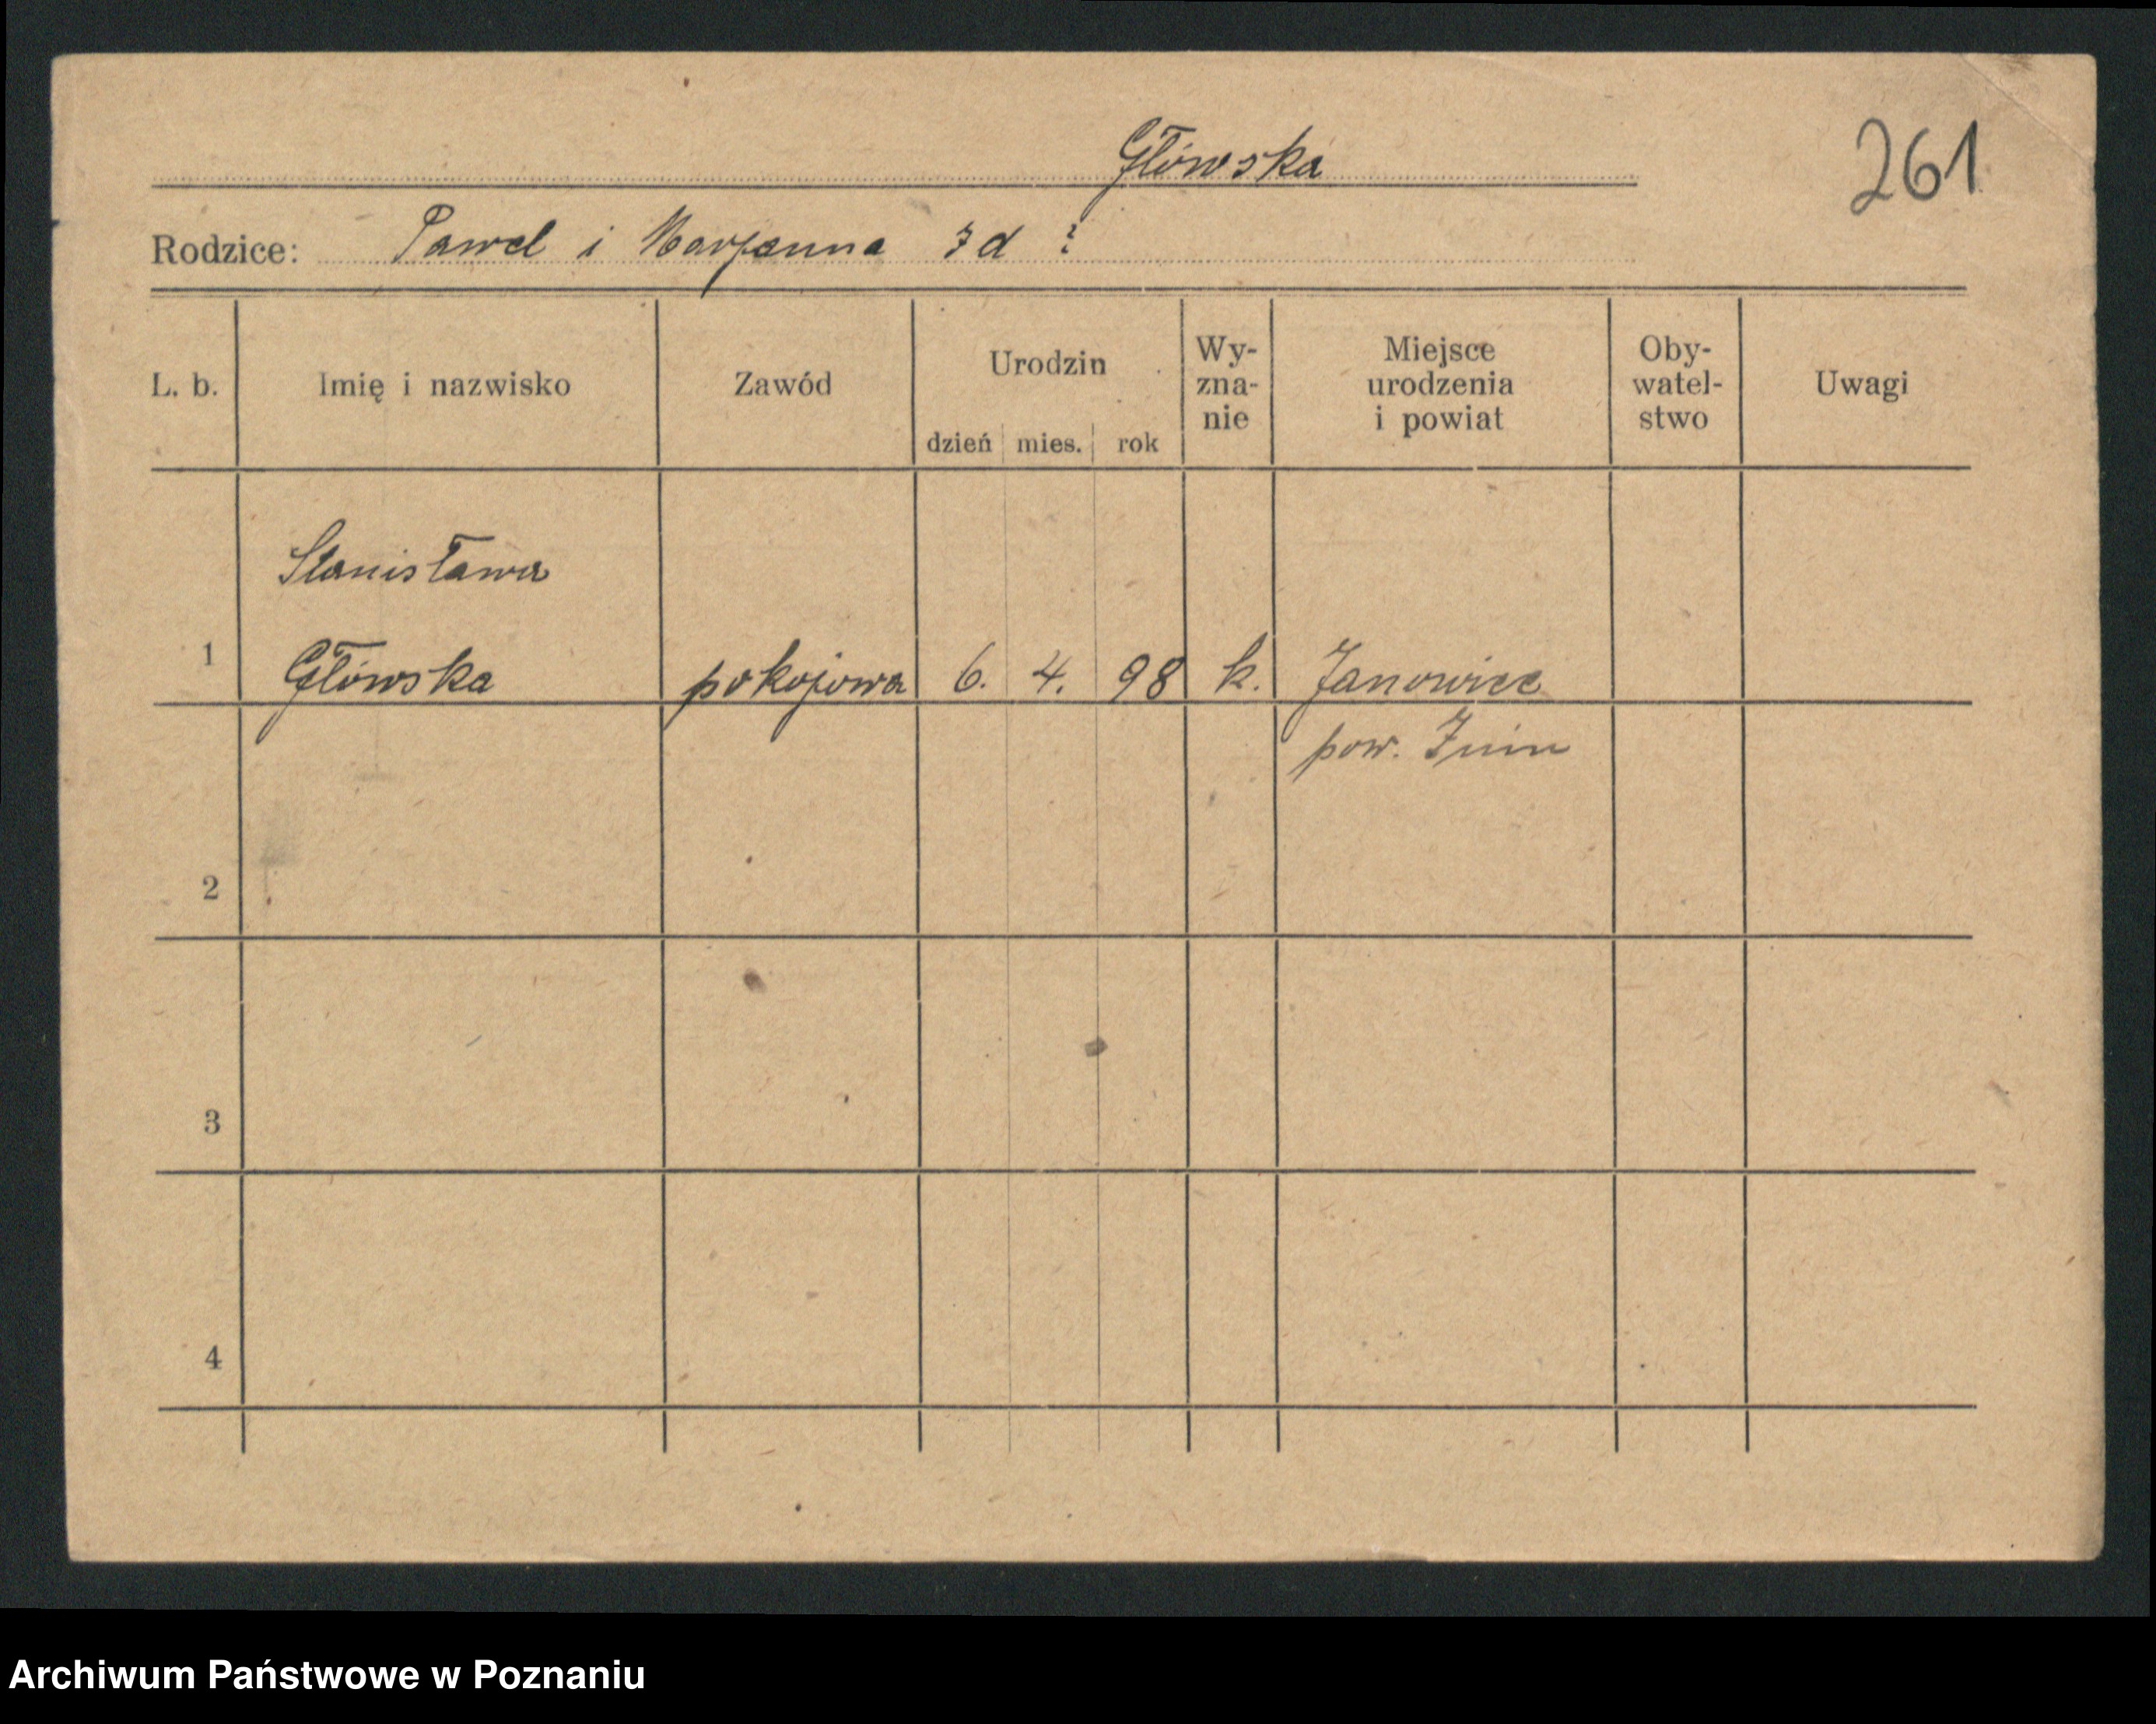 Główska
261
Rodzice: Paweł i Marjanna zd ?
L. b. Imię i nazwisko Zawód Urodzin dzień mies. rok Wy-zna-nie Miejsce urodzenia i powiat Oby-watel-stwo Uwagi
Stanisława
1 Główska pokojowa 6. 4. 98 k. Janowiec
pow. Żnin
2
3
4
Archiwum Państwowe w Poznaniu